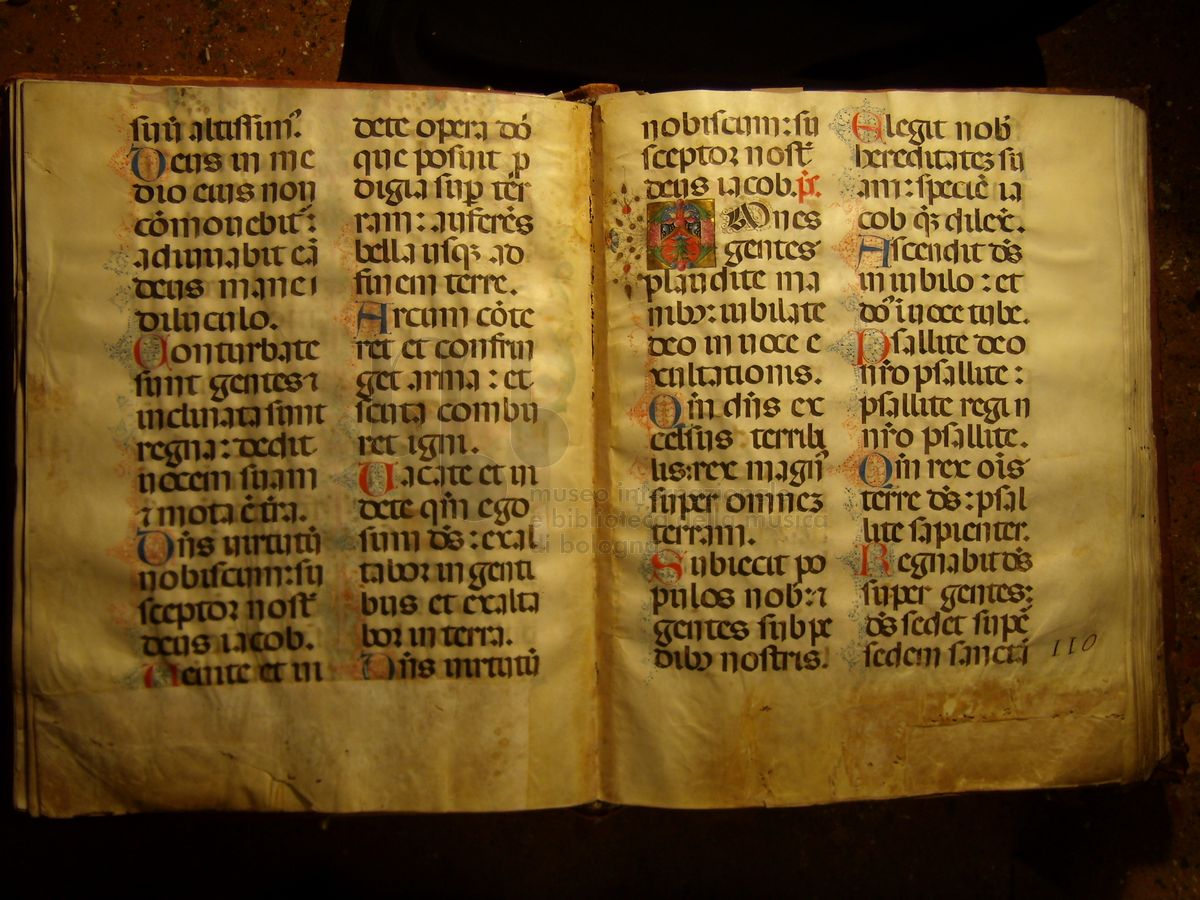 suū altissim᾽.
Deus in me
dio eius non
cōmouebit᾽:
adiuuabit eā
deus mane i
diluculo.
Conturbate
sunt gentes ⁊
inclinata sunt
regna: dedit
uocem suam
⁊ mota ē t̄ra.
Dn̄s uirtutū
nobiscum: su
sceptor nostr̄
deus iacob.
Uenite et ui
dete opera dō
que posuit p
digia sup̱ ter̄
ram: auferēs
bella usqꝫ ad
finem terre.
Arcum cōte
ret et confrin
get arma: et
scuta combu
ret igni.
Uacate et ui
dete qm̄ ego
sum dꝰs: exal
tabor in genti
bus et exalta
bor in terra.
Dn̄s uirtutū
nobiscum: su
sceptor nostr̄
deus iacob. p̄s.
Om̄nes
gentes
plaudite ma
nibꝫ: iubilate
deo in uoce e
xultationis.
Qm̄ dn̄s ex
celsus terribi
lis: rex magn᾽
super omnez
terram.
Subiecit po
pulos nob᾽: ⁊
gentes sub pe
dibꝫ nostris.
Elegit nob᾽
hereditatez su
am: speciē ia
cob qꝫ dilex̄.
Ascendit dꝰs
in iubilo: et
dō᾽ i uoce tube.
Psallite deo
nr̄o psallite:
psallite regi n
nr̄o psallite.
Qm̄ rex oīs
terre dꝰs: psal
lite sapienter.
Regnabit dꝰs
super gentes:
dꝰs sedet supē
sedem sanctā
110
museo in
e biblioteca della musica
di bologna